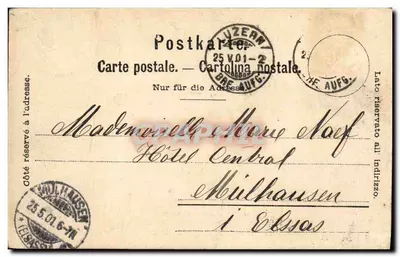 Postkarte.
Carte postale. — Cartolina postale.
Nur für die Adresse
LUZERN
25 V.01-2
BRF. AUFG.
BRF. AUFG.
Côté réservé à l'adresse.
Lato riservato all' indirizzo.
Mademoiselle Marie Naef
Hôtel Central
Mülhausen
i Elsass
MÜLHAUSEN
25.5.01.6-7N
(ELSASS)